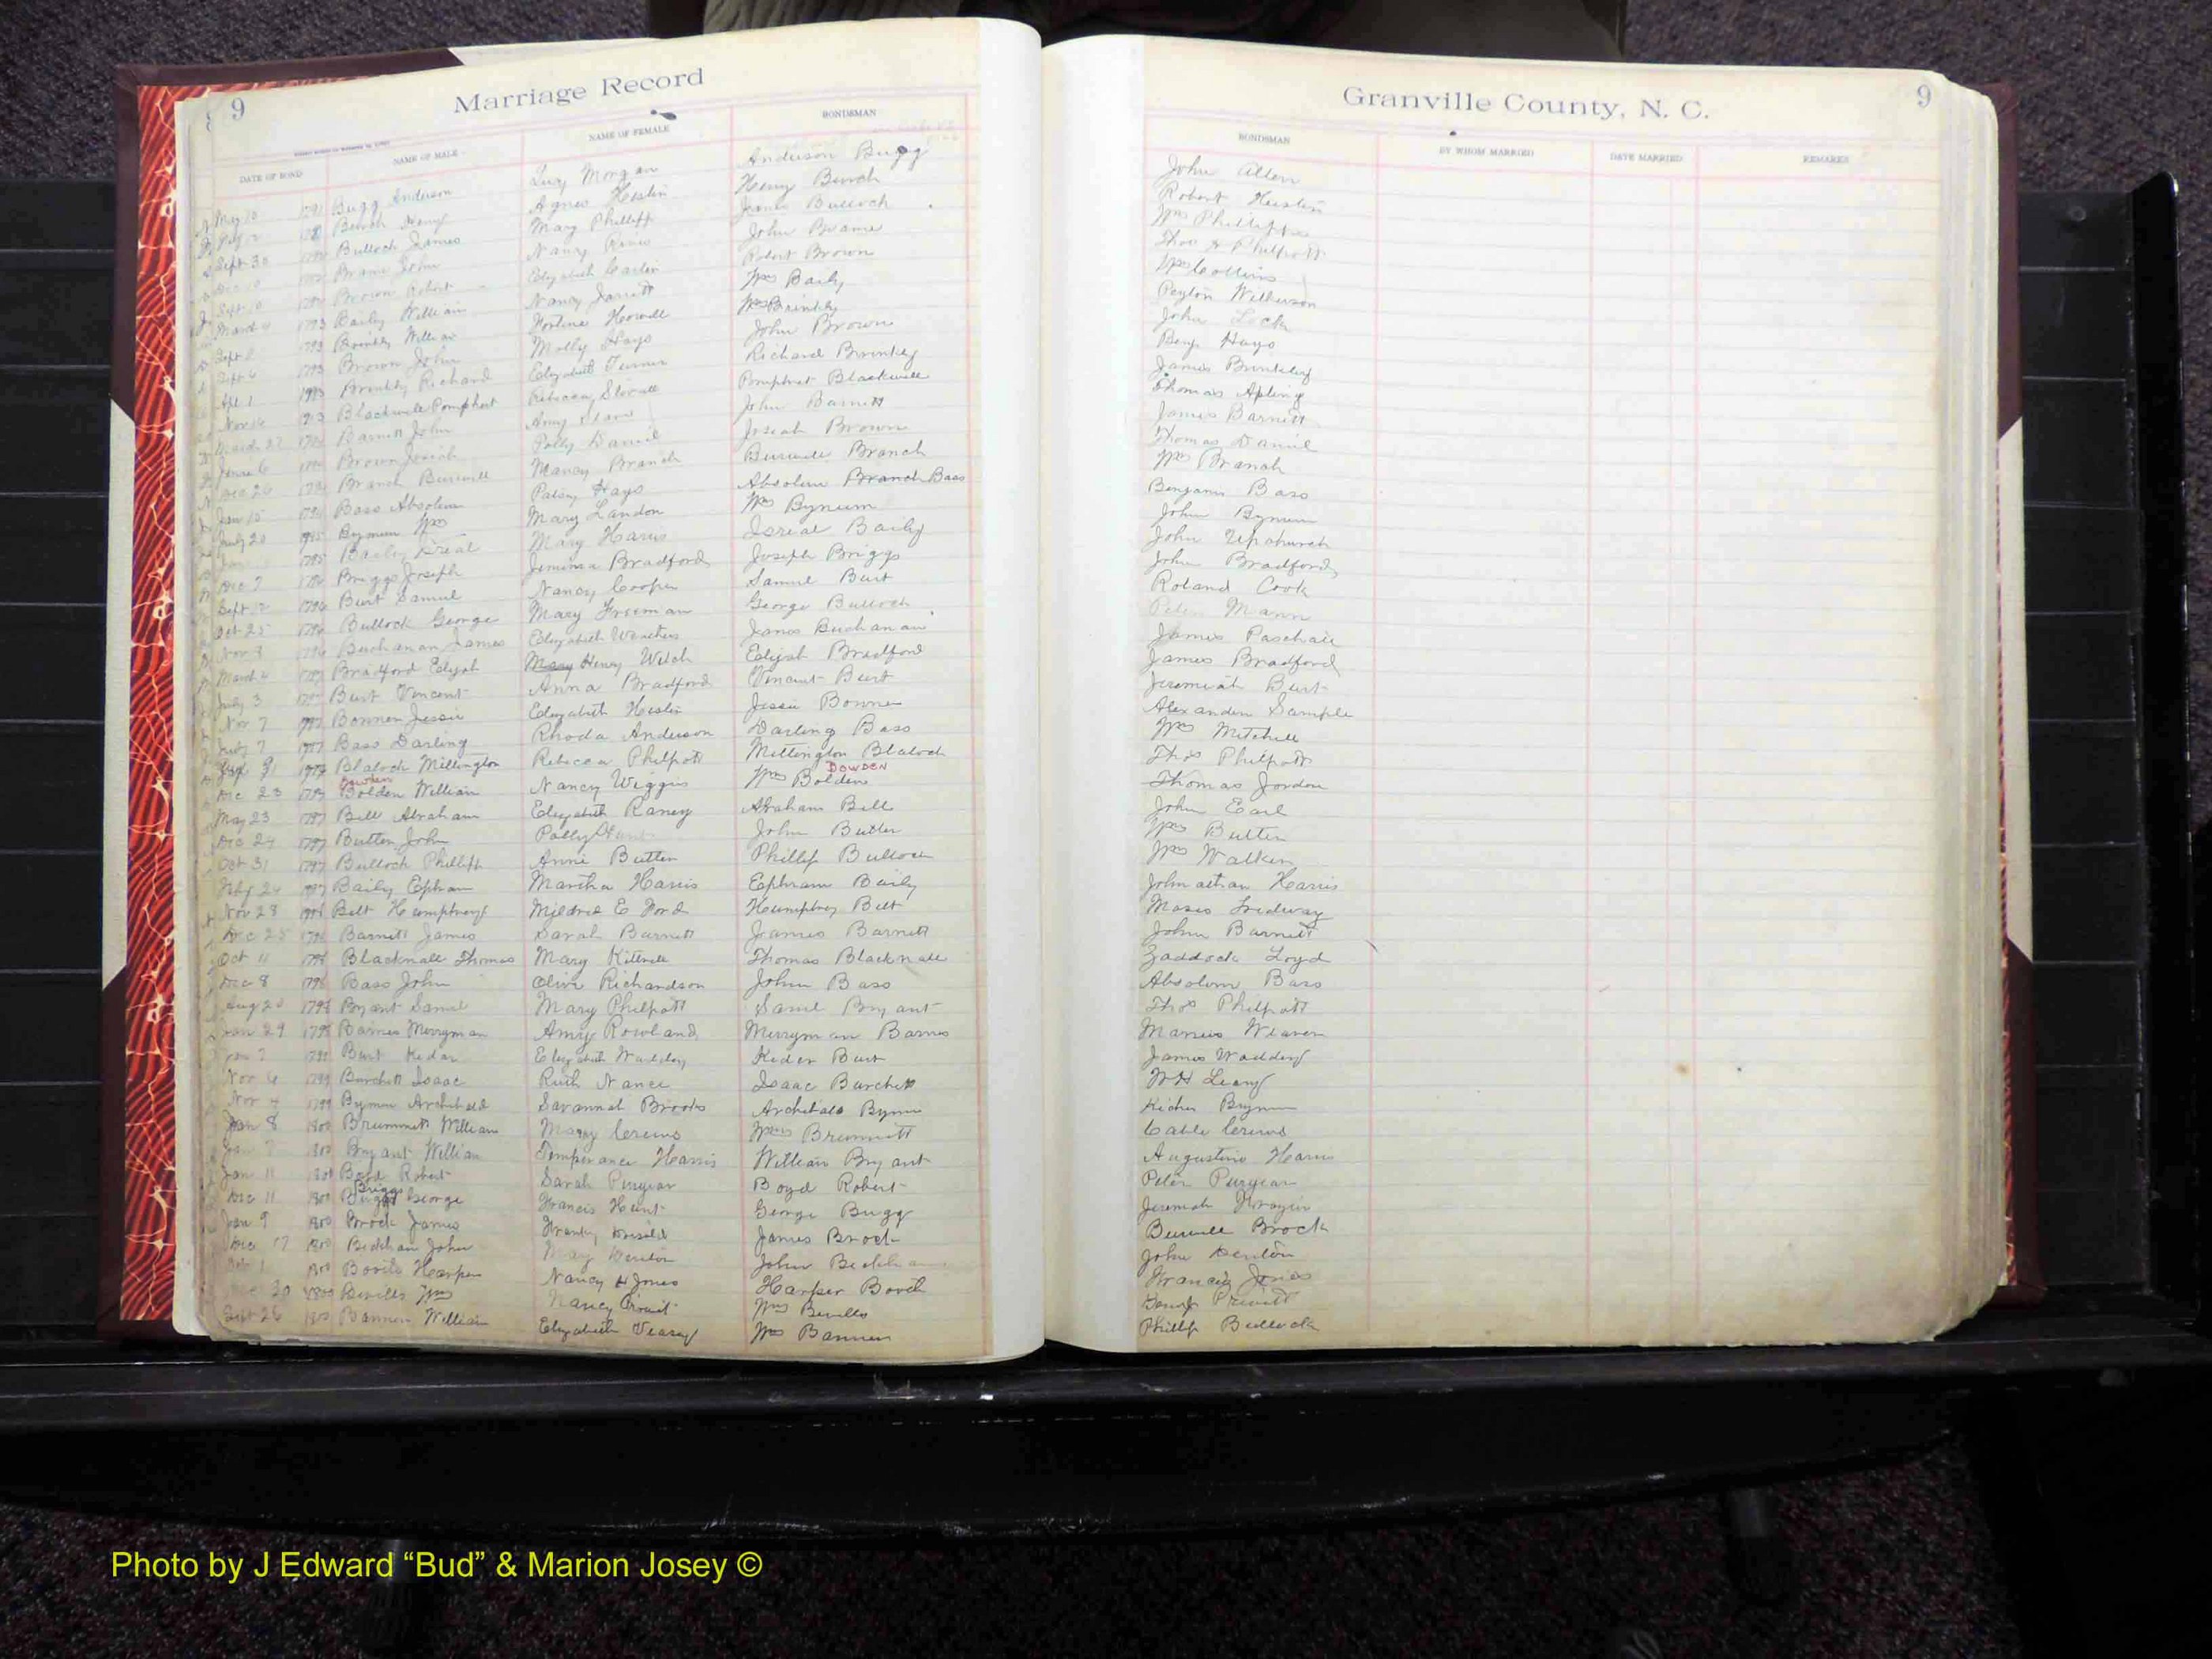 9 Marriage Record
DATE OF BOND NAME OF MALE NAME OF FEMALE BONDSMAN
May 10 1791 Bugg Anderson Lucy Morgan Anderson Bugg
Burch Henry Agnes Hestin Henry Burch
Sept 30 Bulloch James Mary Phillips James Bulloch
Brame John Nancy John Brame
Sept 10 Brown Robert Elizabeth Robert Brown
March 4 1793 Baily William Nancy Jarrott Wm Baily
Sept 2 1793 Brinkly William Howell Wm Brinkly
Sept 6 1793 Brown John Molly Hays John Brown
Apl 1 1793 Brinkly Richard Elizabeth Turner Richard Brinkly
Nov 16 Blackwell Pomphret Rebecca Stovall Pomphret Blackwell
March 27 Barnett John Amy John Barnett
June 6 Brown Josiah Polly Daniel Josiah Brown
Dec 26 Branch Burwell Nancy Branch Burwell Branch
Jan 15 Bass Absolum Patsy Hays Absolum Branch Bass
July 20 1795 Bynum Wm Mary Landon Wm Bynum
1795 Baily Isreal Mary Harris Isreal Baily
Dec 7 Briggs Joseph Jemima Bradford Joseph Briggs
Sept 12 1796 Burt Samuel Nancy Cooper Samuel Burt
Oct 25 1796 Bullock George Mary Freeman George Bullock
Nov 8 1796 Buchanan James Elizabeth Weathers James Buchanan
March 4 1797 Bradford Elijah Mary Henry Welch Elijah Bradford
July 3 Burt Vincent Anna Bradford Vincent Burt
Nov 7 1797 Bonner Jessie Elizabeth Hestin Jessie Bonner
July 7 1797 Bass Darling Rhoda Anderson Darling Bass
Blalock Millington Rebecca Philpott Millington Blalock
Bowden DOWDEN
Dec 23 1797 Bolden William Nancy Wiggins Wm Bolden
May 23 1797 Bell Abraham Elizabeth Raney Abraham Bell
Dec 24 1797 Butler John Polly John Butler
Oct 31 1797 Bullock Phillip Anne Butler Phillip Bullock
24 1797 Baily Ephram Martha Harris Ephram Baily
Nov 28 Belt Humphrey Mildred E Ford Humphrey Belt
Dec 25 1798 Barnett James Sarah Burnett James Barnett
Oct 11 1798 Blacknall Thomas Mary Kittrell Thomas Blacknall
Dec 8 1798 Bass John Olive Richardson John Bass
Aug 20 1798 Bryant Samil Mary Philpott Samil Bryant
Jan 29 1798 Barnes Merryman Amy Rowland Merryman Barnes
Burt Keder Elizabeth Wadding Keder Burt
Nov 6 1799 Burchett Isaac Ruth Nance Isaac Burchett
Nov 4 1799 Bynum Archibald Savannah Brooks Archibald Bynum
Jan 8 1800 Brummett William Mary Crews Wm Brummett
1800 Bryant William Temperance Harris William Bryant
Jan 11 1800 Boyd Robert Sarah Puryear Boyd Robert
Briggs
Dec 11 1800 Bugg George Francis Hunt George Bugg
Jan 9 1800 Brock James Franky Driskill James Brock
Dec 17 1800 Beckham John Mary Denton John Beckham
1800 Booth Harper Nancy H Jones Harper Booth
20 1800 Bevills Wm Nancy Wm Bevills
Sept 26 1800 Banner William Elizabeth Veasey Wm Banner
Granville County, N. C. 9
BONDSMAN BY WHOM MARRIED DATE MARRIED REMARKS
John Allen
Robert Hestin
Wm Phillips
Thos A Philpott
Wm Collins
Peyton Wilkerson
John Lock
Benj Hays
James Brinkley
Thomas Apling
James Barnett
Thomas Daniel
Wm Branch
Benjamin Bass
John Bynum
John Upchurch
John Bradford
Roland Cook
Peter Mann
James Paschall
James Bradford
Jeremiah Burt
Alexander Sample
Wm Mitchell
Thos Philpott
Thomas Jordon
John Earl
Wm Butler
Wm Walker
Johnathan Harris
Moses Fridway
John Burnett
Zaddock Loyd
Absolum Bass
Thos Philpott
Marcus Weaver
James Wadding
W H Leany
Kicher Bynum
Cable Crews
Augustine Harris
Peter Puryear
Jeremiah
Burwell Brock
John Denton
Francis Jones
Prewitt
Phillip Bullock
Photo by J Edward “Bud” & Marion Josey ©